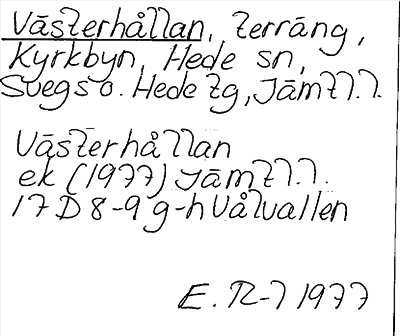 Västerhållan, terräng,
Kyrkbyn, Hede sn,
Svegs o. Hede tg, Jämtl.l.
Västerhållan
ek (1977) Jämtl.l.
17 D 8-9 g-h Vålvallen
E. R-l 1977